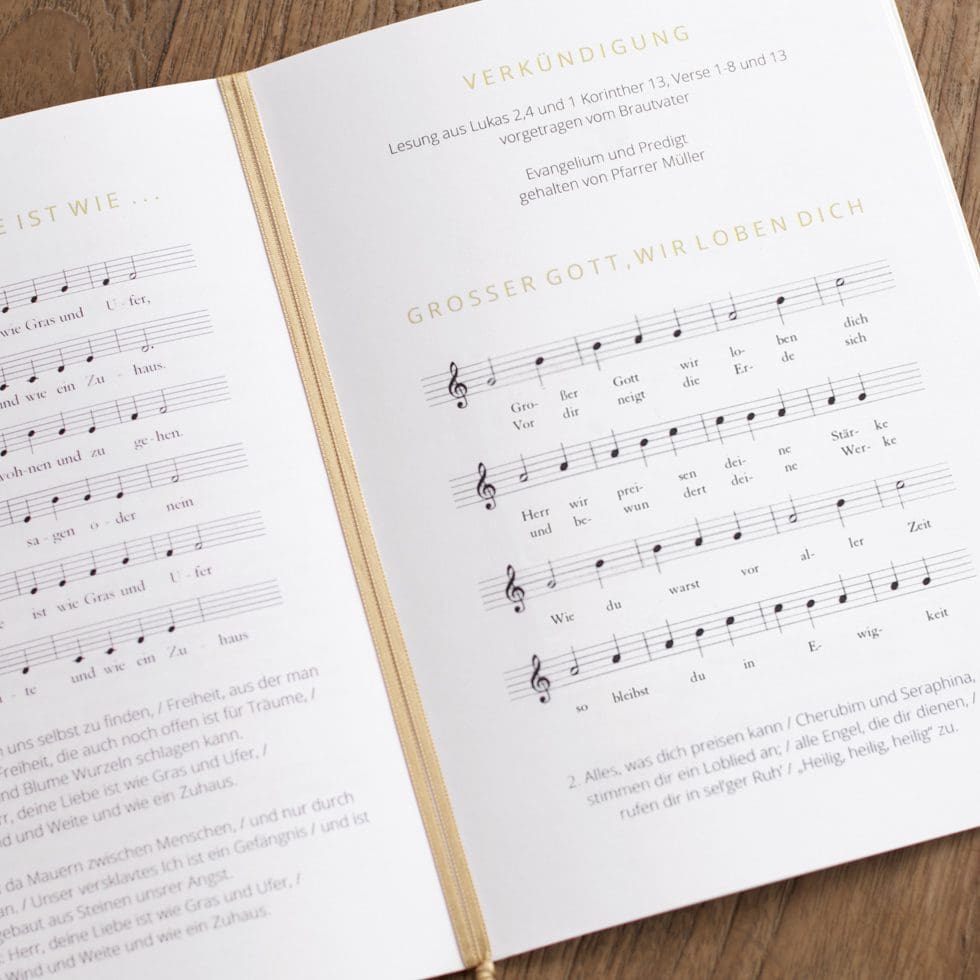 E IST WIE ...
wie Gras und U-fer,
und wie ein Zu - haus.
woh-nen und zu ge-hen.
sa-gen o-der nein
ist wie Gras und U-fer
te und wie ein Zu - haus
uns selbst zu finden, / Freiheit, aus der man
Freiheit, die auch noch offen ist für Träume, /
und Blume Wurzeln schlagen kann.
deine Liebe ist wie Gras und Ufer, /
und Weite und wie ein Zuhaus.
da Mauern zwischen Menschen, / und nur durch
/ Unser versklavtes Ich ist ein Gefängnis / und ist
gebaut aus Steinen unsrer Angst.
Herr, deine Liebe ist wie Gras und Ufer, /
Wind und Weite und wie ein Zuhaus.
VERKÜNDIGUNG
Lesung aus Lukas 2,4 und 1 Korinther 13, Verse 1-8 und 13
vorgetragen vom Brautvater
Evangelium und Predigt
gehalten von Pfarrer Müller
GROSSER GOTT, WIR LOBEN DICH
Gro- ßer Gott wir lo- ben dich
Vor dir neigt die Er- de sich
Herr wir prei- sen dei- ne Stär- ke
und be- wun dert dei- ne Wer- ke
Wie du warst vor al- ler Zeit
so bleibst du in E- wig- keit
2. Alles, was dich preisen kann / Cherubim und Seraphina,
stimmen dir ein Loblied an; / alle Engel, die dir dienen, /
rufen dir in sel'ger Ruh' / „Heilig, heilig, heilig“ zu.